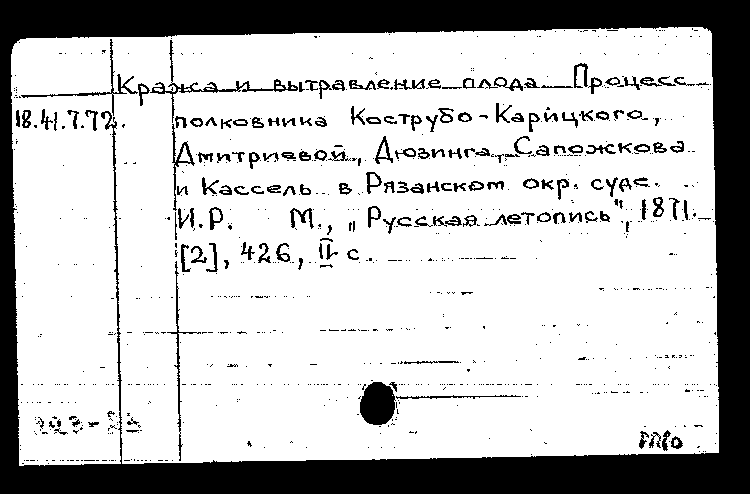 Кража и вытравление плода. Процесс
18.41.7.72. полковника Кострубо-Карицкого,
Дмитриевой, Дюзинга, Сапожкова
и Кассель в Рязанском окр. суде.
И.Р. М., „Русская летопись", 1871.
[2], 426, II с.